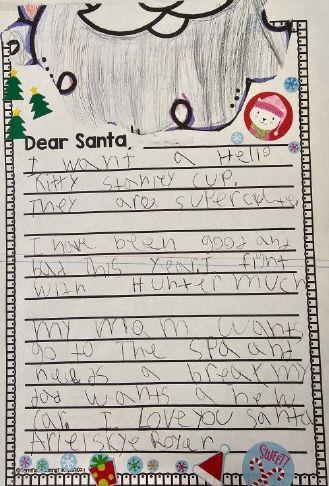 Dear Santa,
I want a Hello
Kitty stanley cup.
They are supercute.
I have been good and
bad this year. I fight
with Hunter much
my mom wants
go to The spa and
needs a break my
dad wants a new
car. I Love you santa
Arielskye Royer
SWEET!